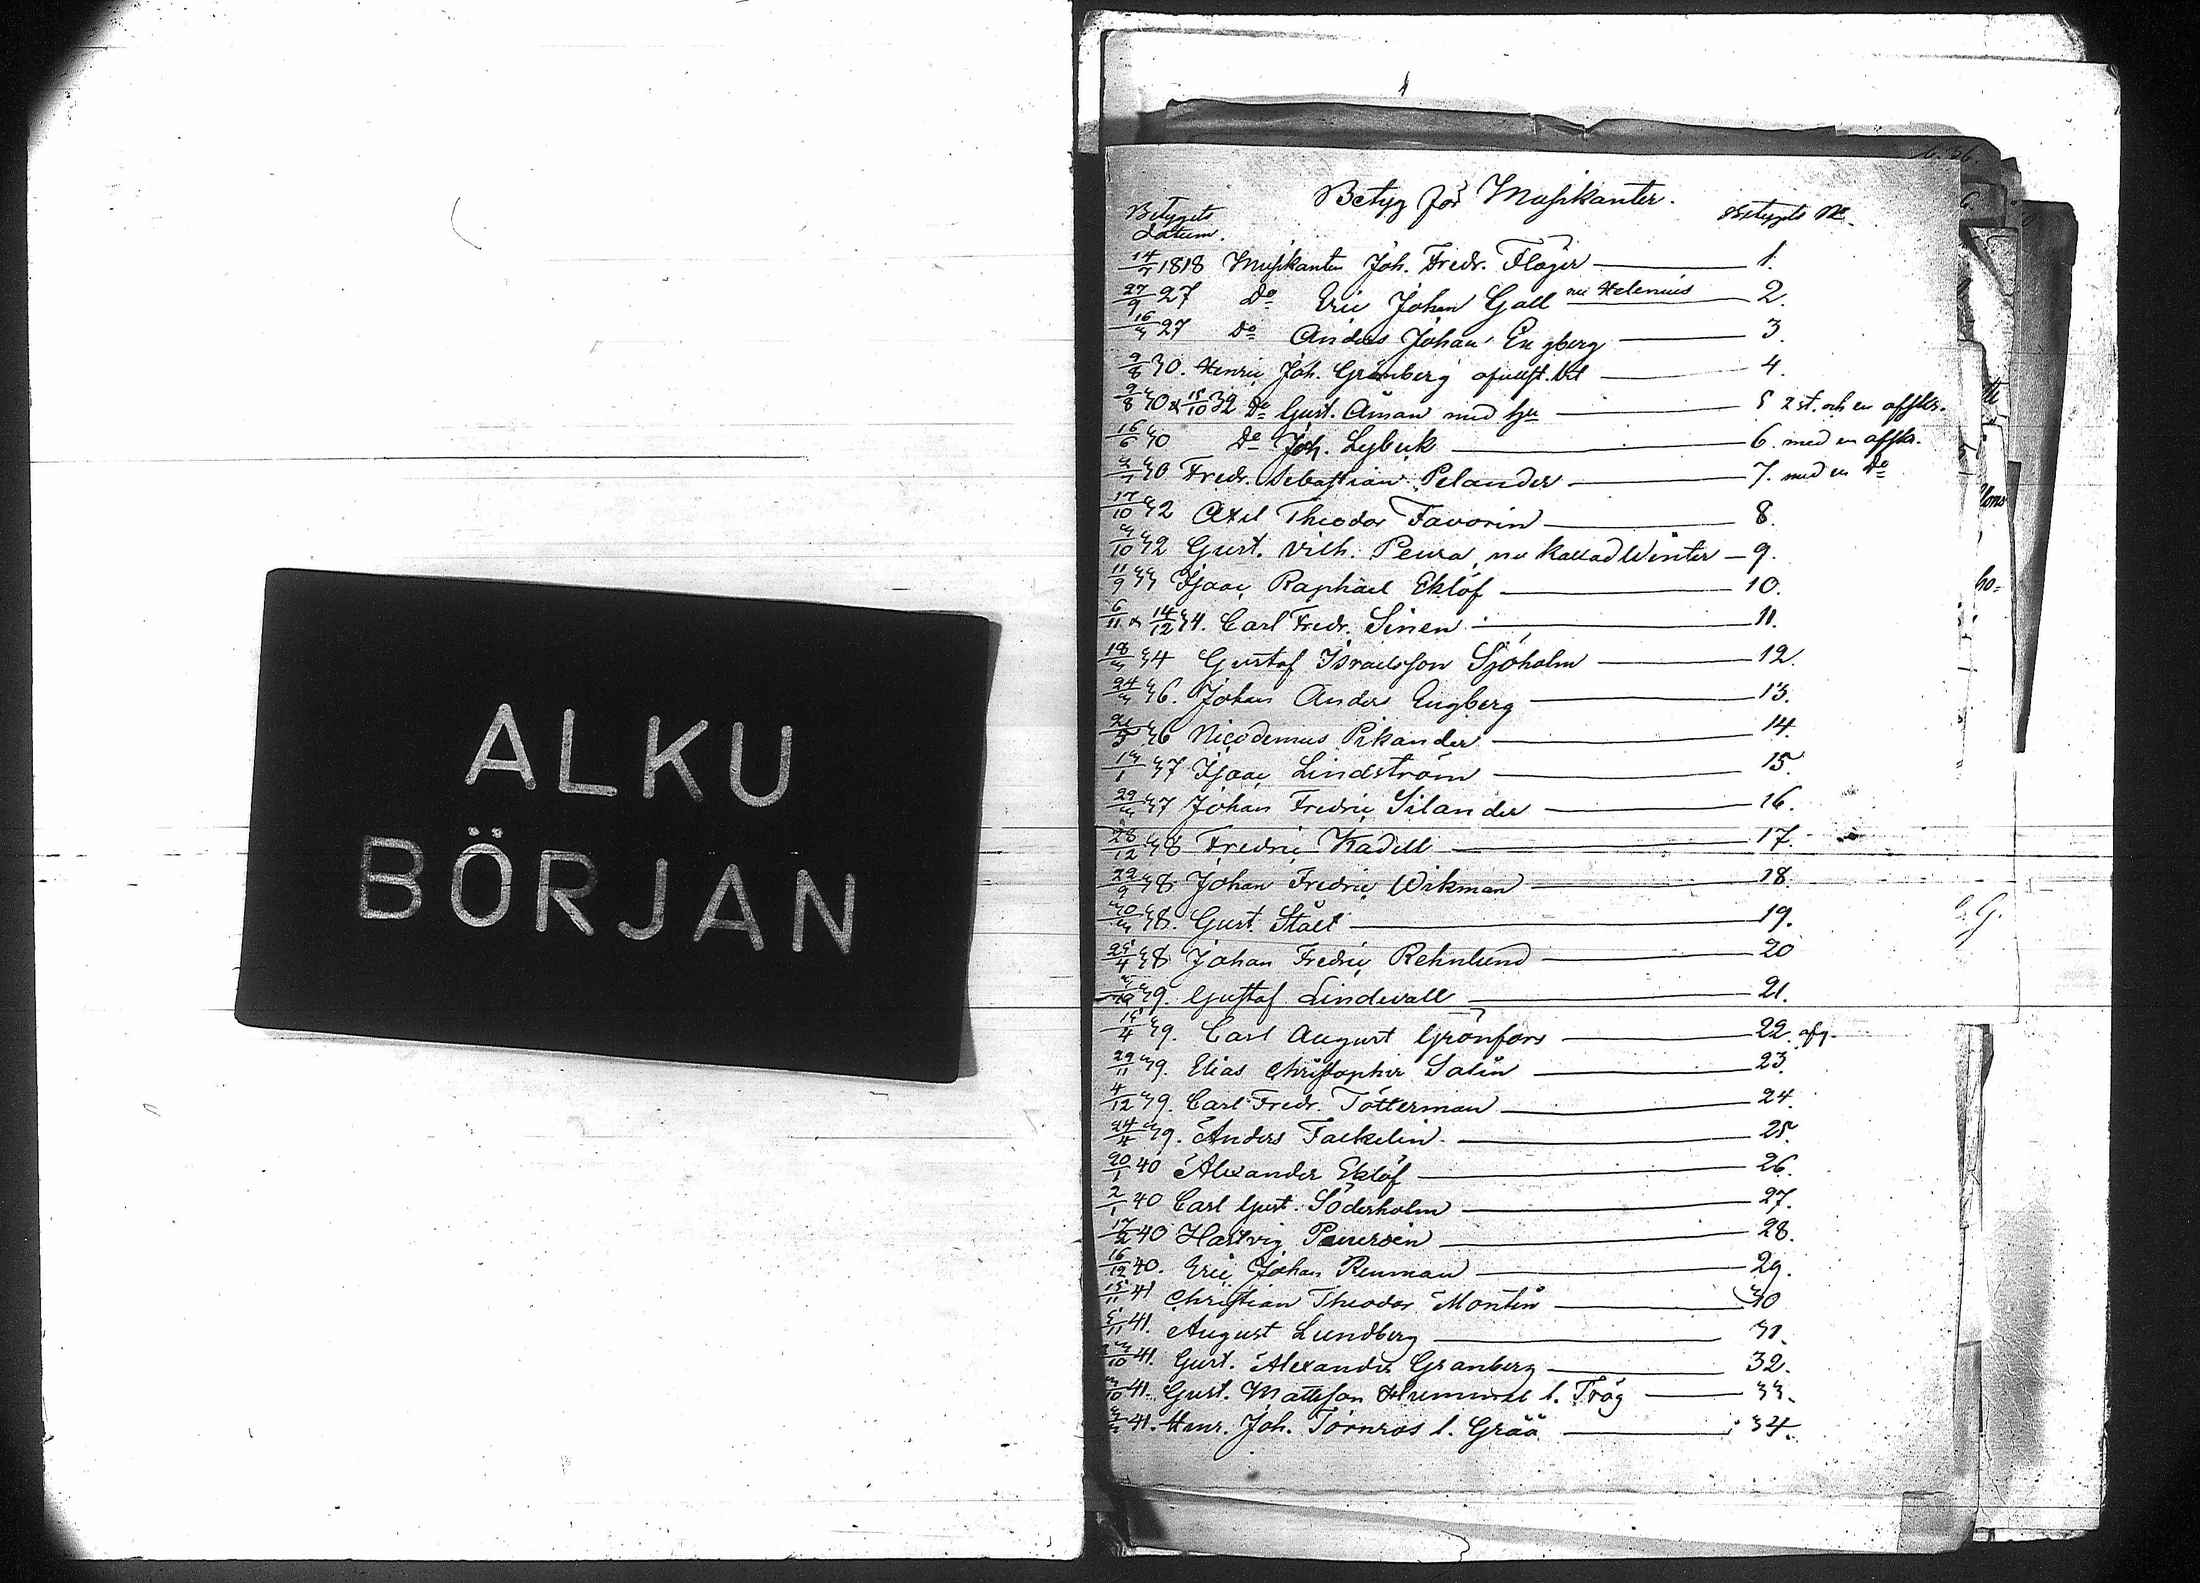 ALKU
BÖRJAN
Betyg för Musikanter.
Betygets datum.
Betygets No
14/7 1818 Musikanten Joh. Fredr. Flöjer 1.
27/9 27 Do Eric Johan Gall nu Helenius 2.
16/3 27 Do Anders Johan Engberg 3.
9/8 30. Henric Joh. Grönberg 4.
9/8 30 & 15/10 32 Do Gust. Åman med 5 2 st. och en afskr.
16/6 30 Do Joh. Lybeck 6. med en afskr.
30 Fredr. Sebastian Pelander 7. med en Do
17/10 32 Axel Theodor Favorin 8.
3/10 32 Gust. Vilh. Peura, nu kallad Winter 9.
11/9 33 Isaac Raphael Eklöf 10.
6/11 & 14/12 34. Carl Fredr. Sinen 11.
18/3 34 Gustaf Israelsson Sjöholm 12.
24/3 36. Johan Anders Engberg 13.
36 Nicodemus Pikander 14.
13/1 37 Isaac Lindström 15.
29/3 37 Johan Fredric Silander 16.
28/12 38 Fredric Kadell 17.
22/9 38 Johan Fredric Wikman 18.
30/3 38. Gust. Stål 19.
25/4 38 Johan Fredric Rehnlund 20
39. Gustaf Lindevall 21.
15/4 39. Carl August Grönfors 22. afs.
29/11 39. Elias Christopher Salin 23.
4/12 39. Carl Fredr. Tötterman 24.
24/4 39. Anders Fackelin 25.
20/1 40 Alexander Eklöf 26.
2/1 40 Carl Gust. Söderholm 27.
17/2 40 Hartvig 28.
16/12 40. Eric Johan Renman 29.
15/11 41 Christian Theodor Montin 30
5/11 41. August Lundberg 31.
41. Gust. Alexander Granberg 32.
3/10 41. Gust. Mattsson Hummel l. Trög 33.
41. Henr. Joh. Törnroos l. Gråå 34.